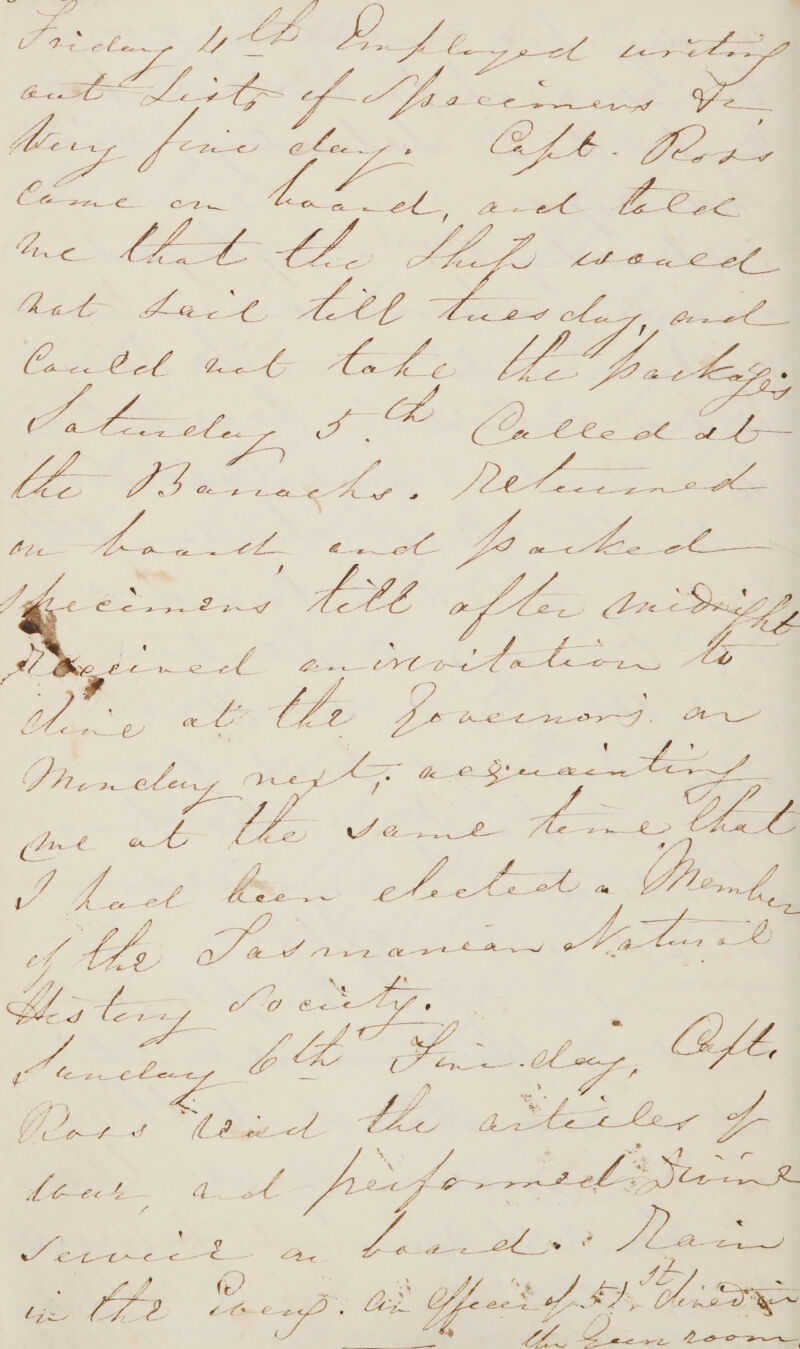 Friday 4th Employed writing
out Lists of Specimens &c
Very fine day. Capt. Ross
came on board, and told
me that the Ship would
not sail till tuesday, and
Could not take the packages
Saturday 5th Called at
the Barracks. Returned
on board and packed
specimens till after Midnight
Received an invitation to
dine at the Governors on
Monday next, acquainting
me at the same time that
I had been elected a Member
of the Tasmanian Natural
History Society.
Sunday 6th Fine day, Capt.
Ross read the articles of
war, and performed Divine
Service on board. Rain
in the Eveng. An Officer of 51st dined in
the Gun room